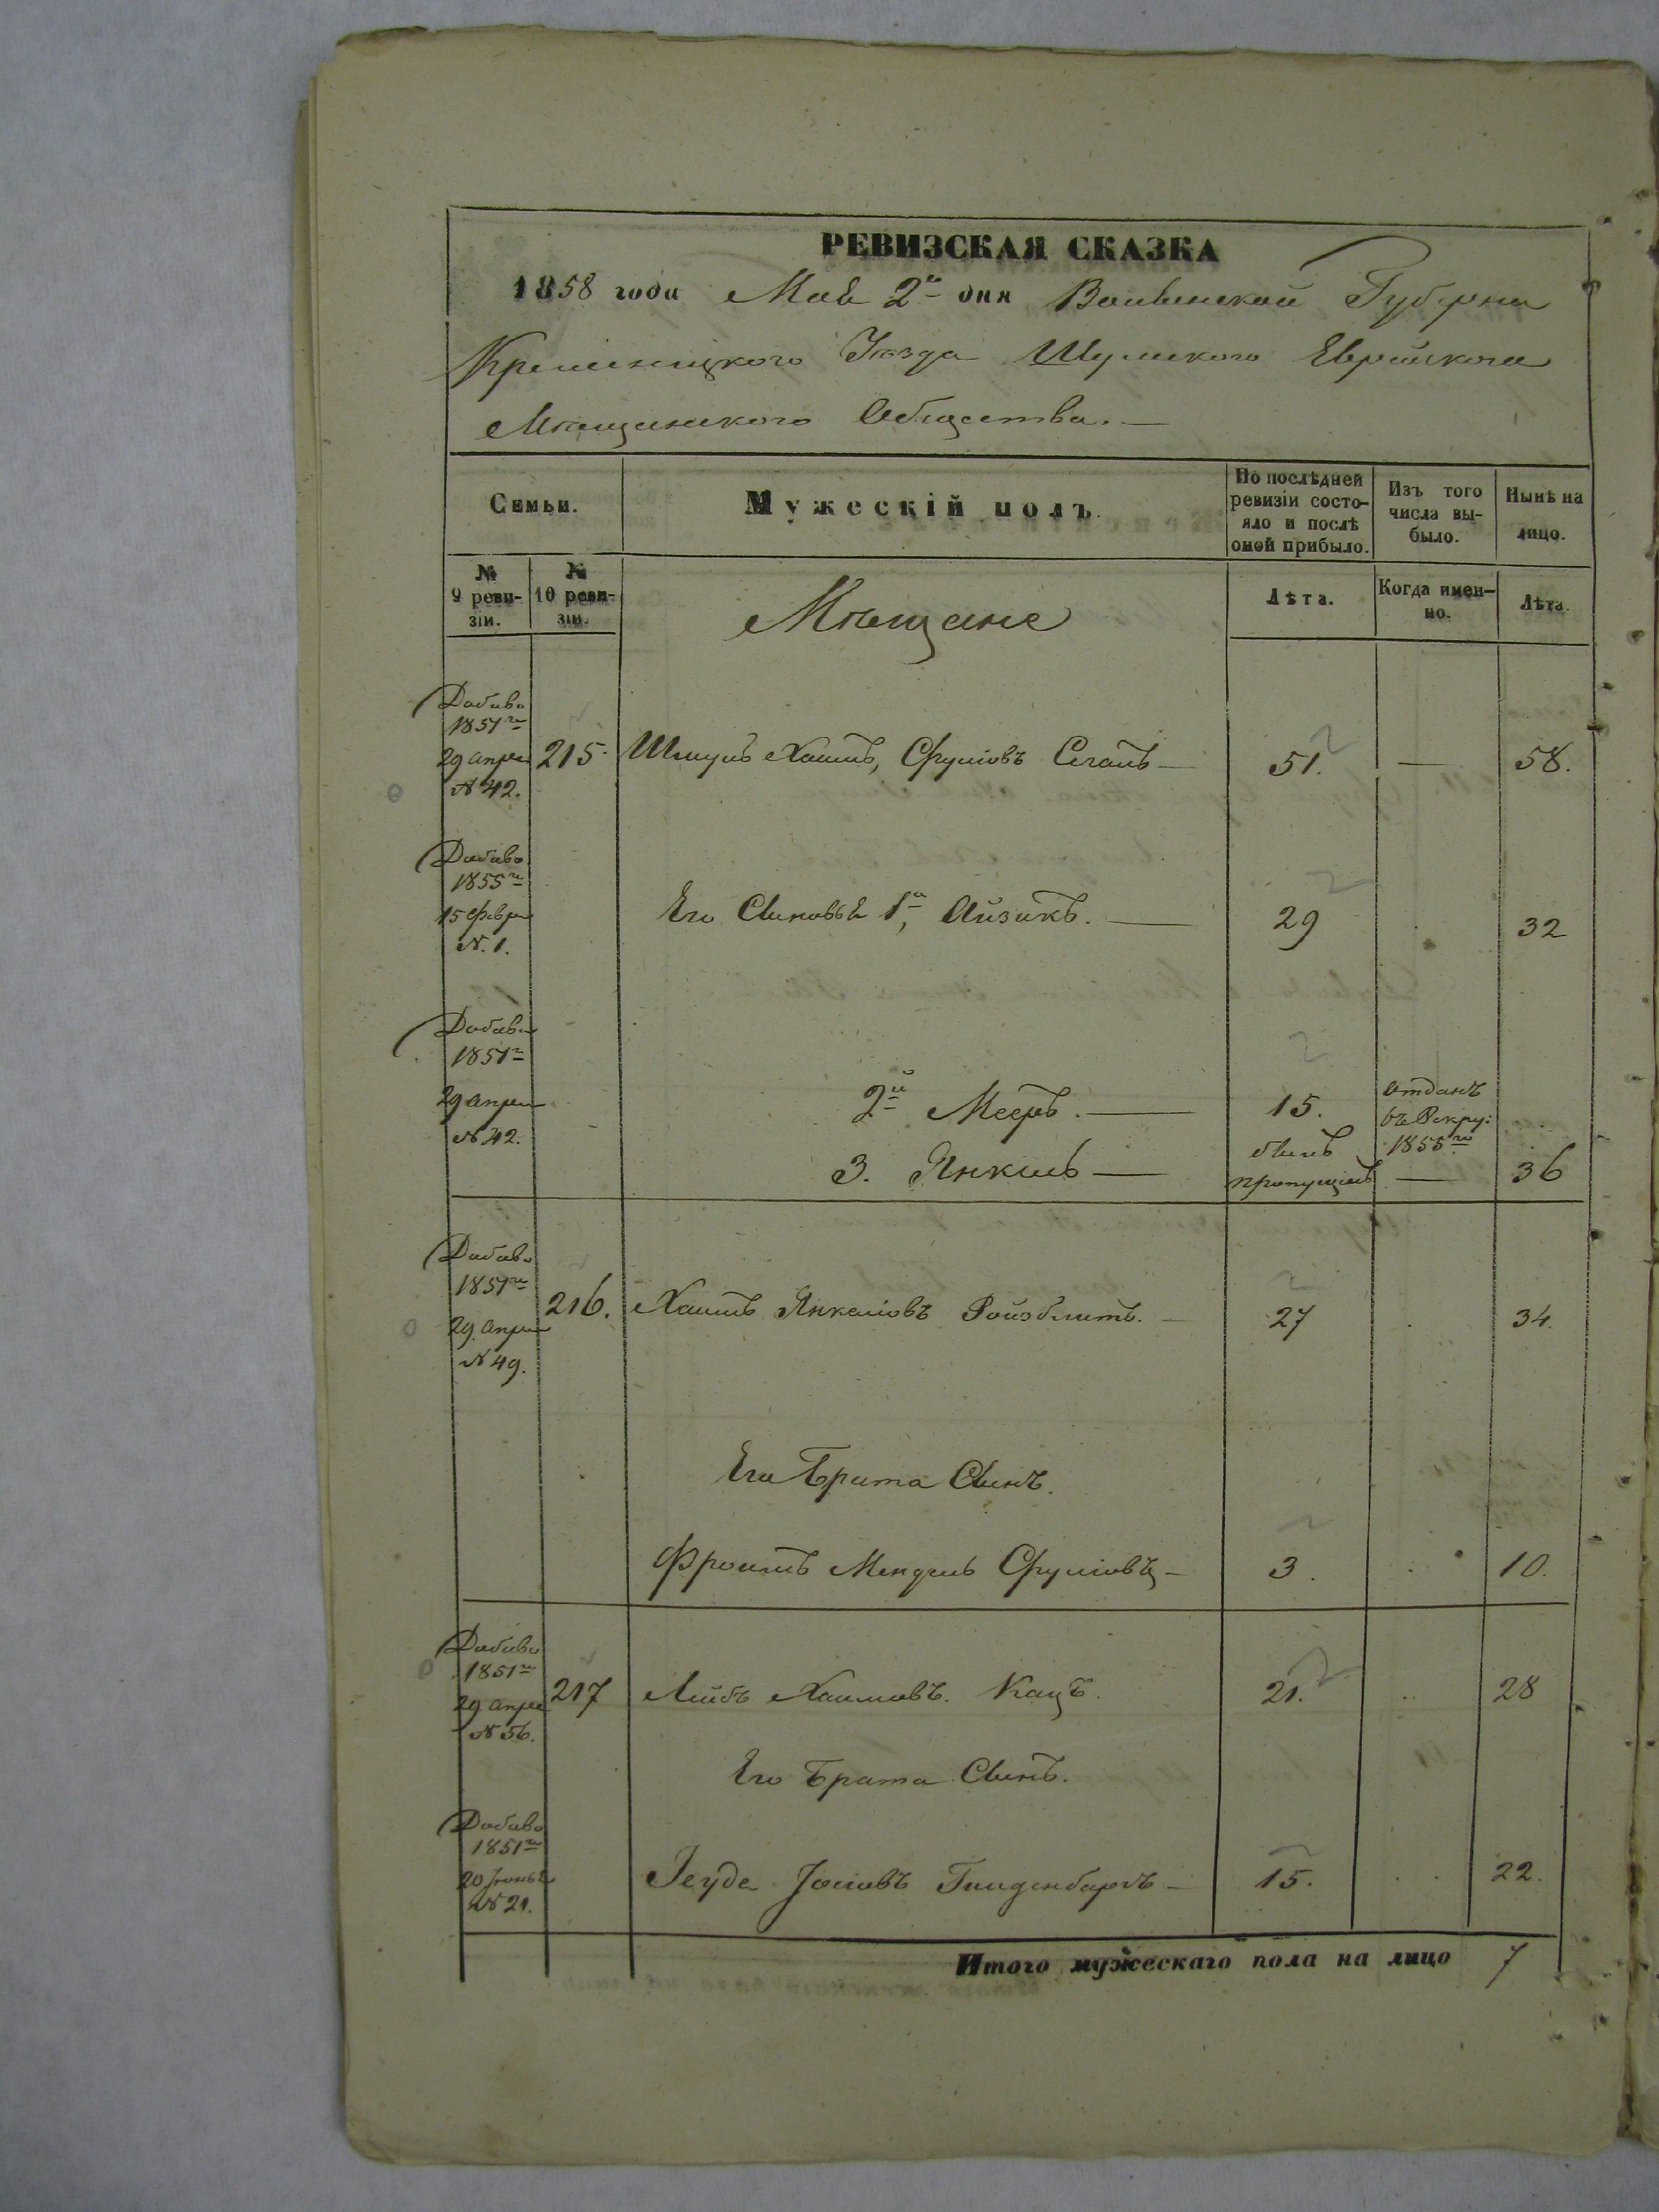 РЕВИЗСКАЯ СКАЗКА
1858 года Мая 2го дня Волынской Губерни
Кременецкого Уѣзда Шумского Еврейского
Мѣщанского Общества.—
Семьи. Мужескій полъ. По послѣдней ревизіи состояло и послѣ оной прибыло. Изъ того числа выбыло. Нынѣ на лицо.
№ 9 ревизіи. № 10 ревизіи. Мѣщане Лѣта. Когда именно. Лѣта.
Добаво
1851го
29 апрел 215. Шмуль Хаимъ, Сруліовъ 51. — 58.
№ 42.
Добаво
1855го
15 февра Его Сыновья 1й, Айзикъ. — 29 32
№. 1.
Добаво
1851го
29 апрел 2й Мееръ. — 15. отданъ въ Рекру: 1855го
№ 42.
3. Янкель — былъ пропущенъ — 36
Добаво
1851го
29. апрел 216. Хаимъ Янкеліовъ Ройзблитъ. — 27 34.
№ 49.
Его Брата Сынъ.
Фроимъ Мендель Сруліовъ — 3. 10.
Добаво
1851го
29 апрел 217 Лейбъ Хаимовъ. Кацъ. 21. 28
№ 56.
Его Брата Сынъ.
Добаво
1851го
20 Іюня Іеуде Іосіовъ — 15. 22.
№ 21.
Итого мужескаго пола на лицо 7